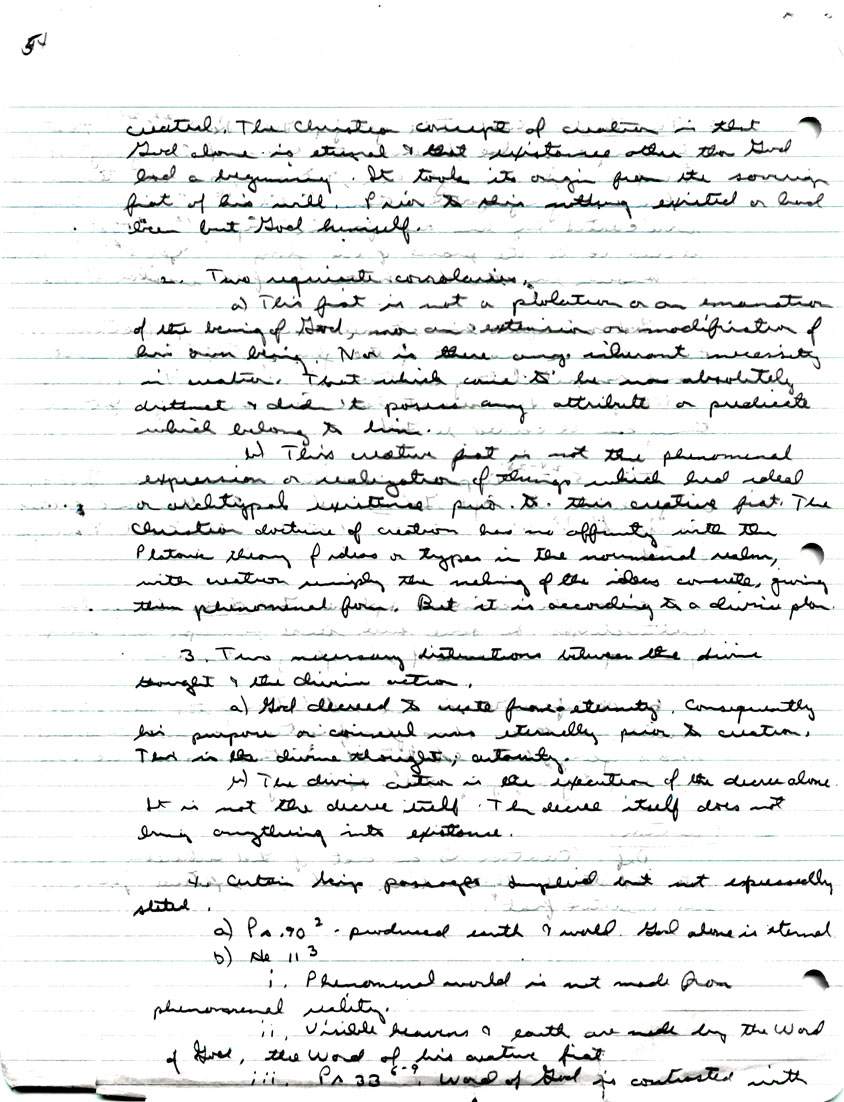 54
created. The Christian concept of creation is that
God alone is eternal & that existence other than God
had a beginning. It took its origin from the soverign
fiat of his will. Prior to this nothing existed or had
been but God himself.
2. Two requisite corrolaries.
a) This fiat is not a or an emanation
of the being of God, nor an extension or modification of
his own being. Nor is there any inherant necessity
in creation. That which came to be was absolutely
distinct & didn't posess any attribute or predicate
which belong to him.
b) This creative fiat is not the phenomenal
expression or realization of things which had ideal
or archtypal existence prior to this creative fiat. The
Christian doctrine of creation has no affinity with the
Platonic theory of ideas or types in the noumenal realm,
with creation simply the making of the ideas concrete, giving
them phenomenal form. But it is according to a divine plan.
3. Two necessary distinctions between the divine
thought & the divine action.
a) God decreed to create from eternity. Consequently
his purpose or counsel was eternally prior to creation.
This is the divine thought,
b) The divine action is the execution of the decree alone.
It is not the decree itself. The decree itself does not
bring anything into existance.
4. Certain key passages implied but not expressedly
stated.
a) Ps. 90² - produced earth & world. God alone is eternal
b) He 11³
i. Phenomenal world is not made from
phenomenal reality.
ii. Visible heavens & earth are made by the Word
of God, the Word of his creative fiat
iii. Ps 33⁶⁻⁹. Word of God is contrasted with